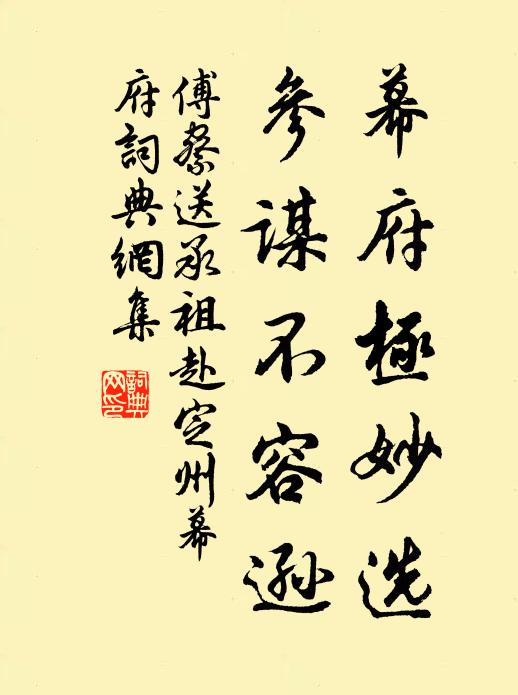 幕府極妙选
參謀不容遜
傅察送承祖赴定州幕
府詞典網集
詞典
网印